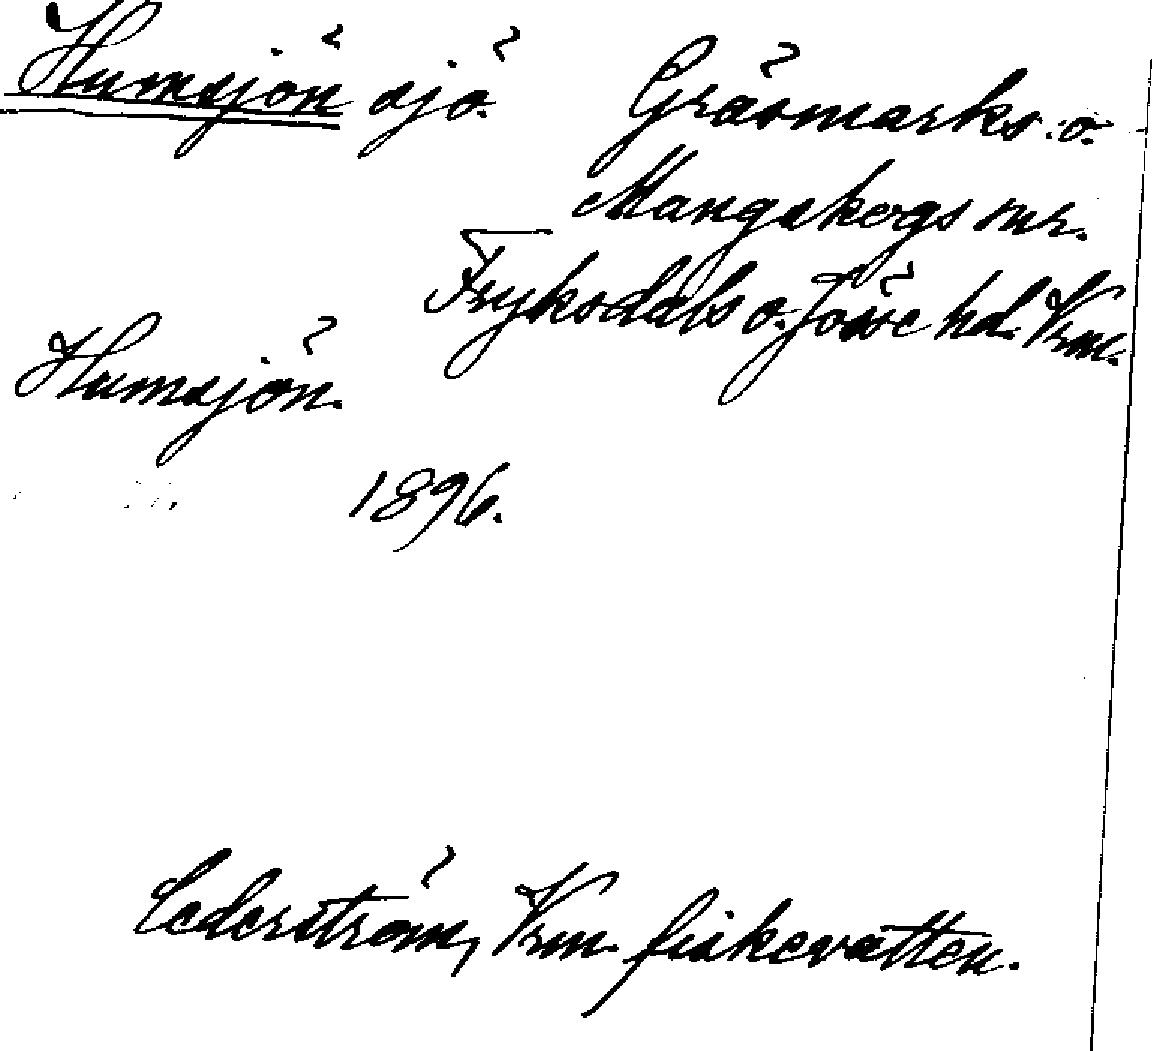 Humsjön sjö. Gräsmarks o.
Mangskogs snr.
Fryksdals o. Jösse hd. Vrm.
Humsjön.
1896.
Cederström, Vrm. fiskevatten.